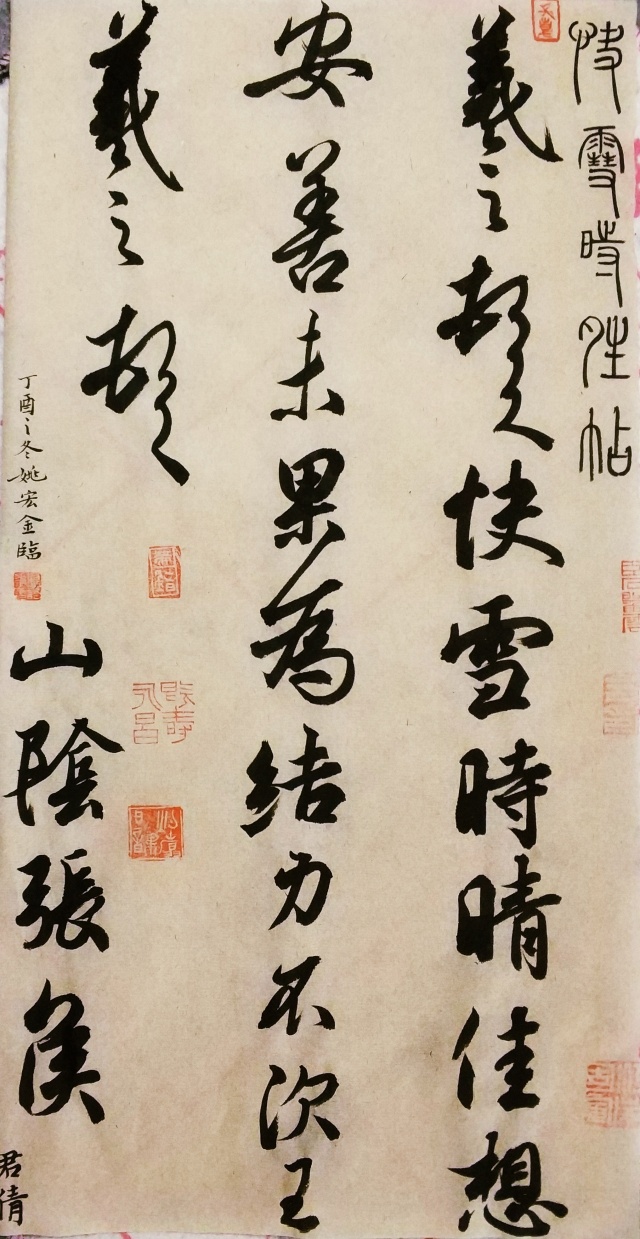 快雪時晴帖
羲之頓首快雪時晴佳想
安善未果為結力不次王
羲之頓首
山陰張侯
丁酉之冬姚宏金臨
君倩